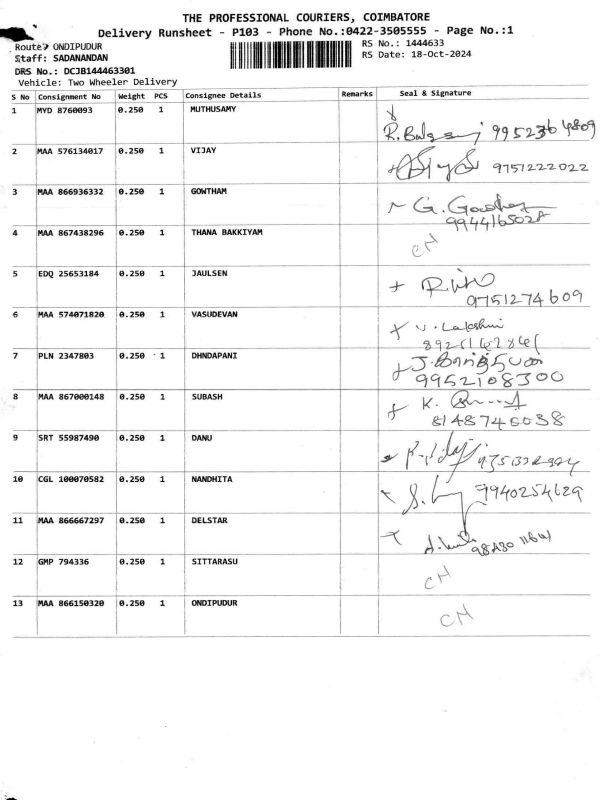 THE PROFESSIONAL COURIERS, COIMBATORE
Delivery Runsheet - P103 - Phone No.:0422-3505555 - Page No.:1
Route: ONDIPUDUR
RS No.: 1444633
Staff: SADANANDAN
RS Date: 18-Oct-2024
DRS No.: DCJB144463301
Vehicle: Two Wheeler Delivery
S No Consignment No Weight PCS Consignee Details Remarks Seal & Signature
1 MYD 8760093 0.250 1 MUTHUSAMY
2 MAA 576134017 0.250 1 VIJAY 9751222022
3 MAA 866936332 0.250 1 GOWTHAM
4 MAA 867438296 0.250 1 THANA BAKKIYAM CN
5 EDQ 25653184 0.250 1 JAULSEN
9751274609
6 MAA 574071820 0.250 1 VASUDEVAN V. Lakshmi
7 PLN 2347803 0.250 1 DHNDAPANI
9952108300
8 MAA 867000148 0.250 1 SUBASH
8148746038
9 SRT 55987490 0.250 1 DANU
10 CGL 100070582 0.250 1 NANDHITA 9940254629
11 MAA 866667297 0.250 1 DELSTAR
12 GMP 794336 0.250 1 SITTARASU CN
13 MAA 866150320 0.250 1 ONDIPUDUR CN